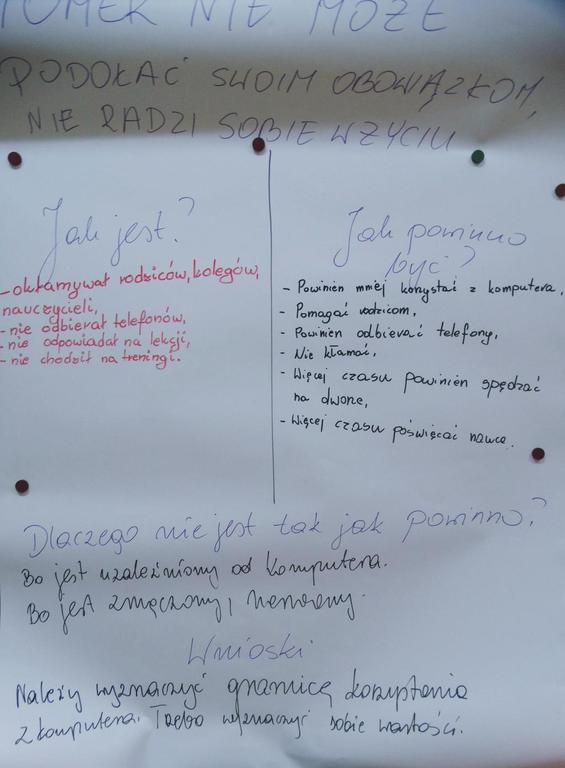 TOMEK NIE MOŻE
PODOŁAĆ SWOIM OBOWIĄZKOM,
NIE RADZI SOBIE W ŻYCIU
Jak jest?
- okłamywał rodziców, kolegów,
nauczycieli,
- nie odbierał telefonów,
- nie odpowiadał na lekcji,
- nie chodził na treningi.
Jak powinno
być?
- Powinien mniej korzystać z komputera,
- Pomagać rodzicom,
- Powinien odbierać telefony,
- Nie kłamać,
- Więcej czasu powinien spędzać
na dworze,
- Więcej czasu poświęcać nauce.
Dlaczego nie jest tak jak powinno?
Bo jest uzależniony od komputera.
Bo jest zmęczony, nerwowy.
Wnioski
Należy wyznaczyć granicę korzystania
z komputera. Trzeba wyznaczyć sobie wartości.